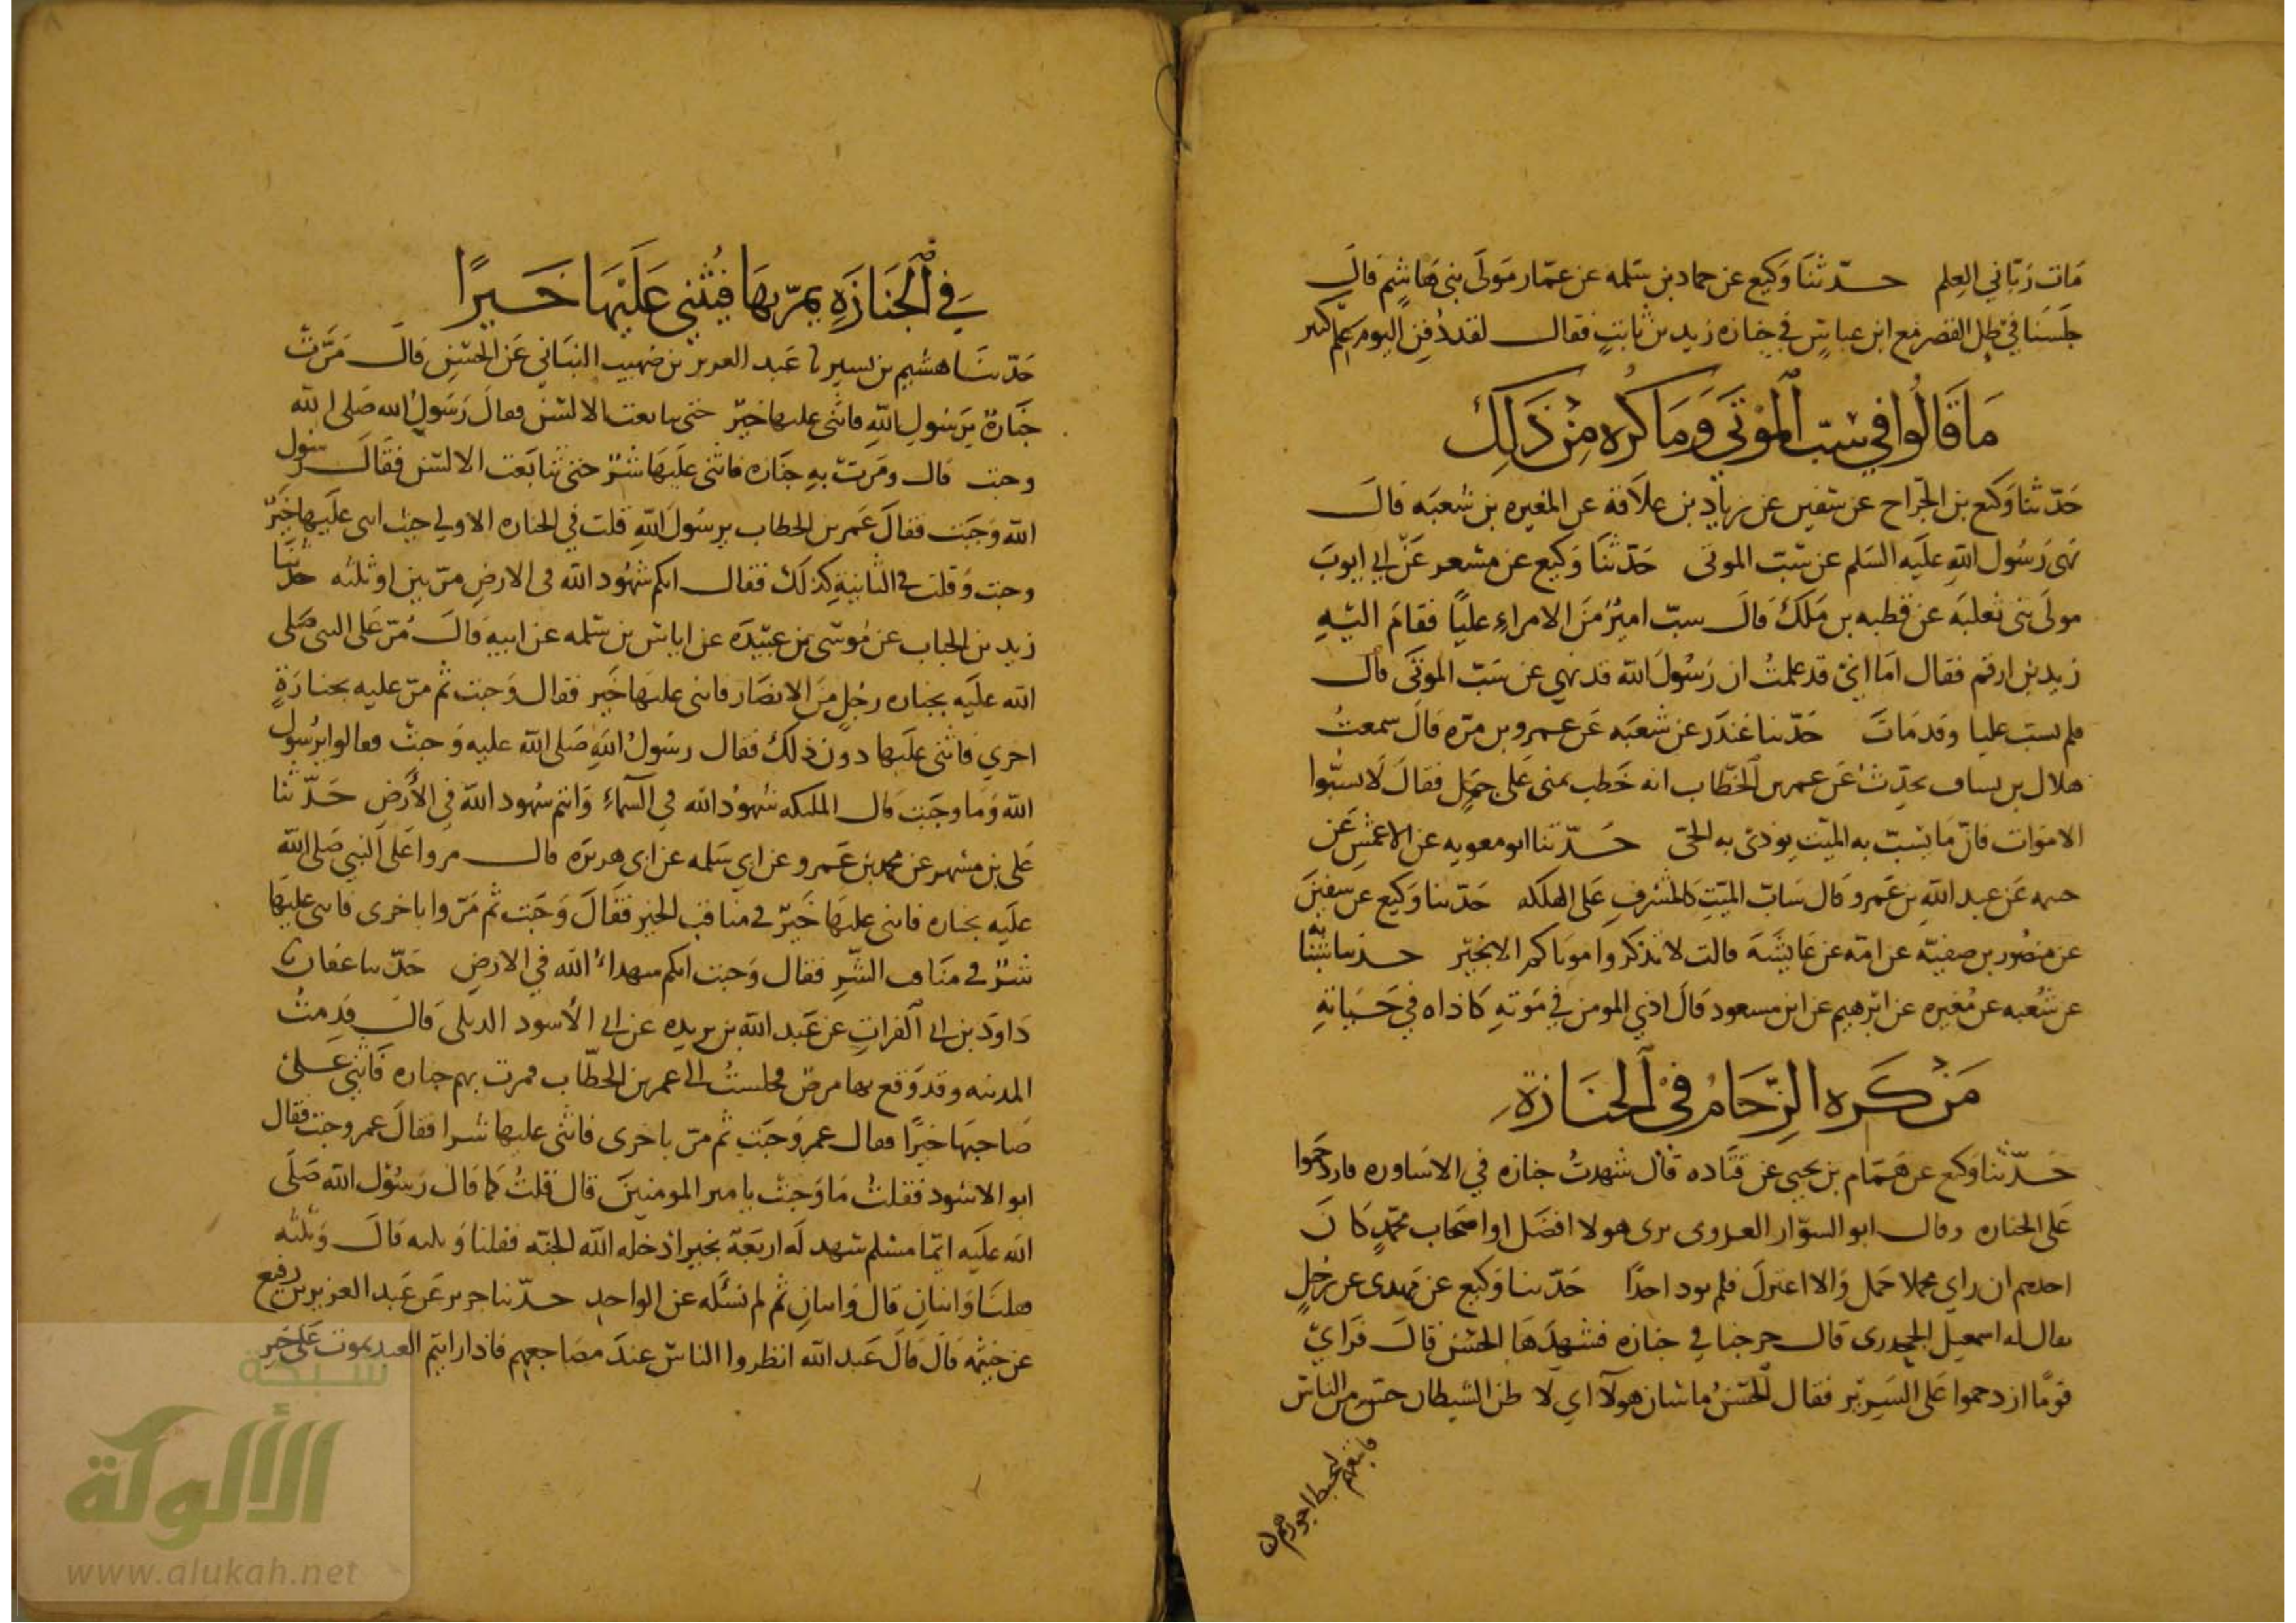 مَات رَبّاني العِلم حدّثنَا وَكيع عن حماد بن سَلمه عن عمّار مَولَى بني هَاشِم قال
جلَسنَا في ظِل القصر مَع ابن عباسٍ في جنازه زيد بن ثابتٍ فقال لقد دُفِن اليوم علم كثير
مَا قَالُوا في سَبّ المَوْتَى وَمَا كُرِه مِنْ ذَلِكَ
حَدّثنا وَكيع بن الجرّاح عن سفين عن زياد بن علاَقة عن المغيره بن شعبَه قالَ
نهى رَسُول اللهِ علَيه السَلم عن سَبّ الموتى حَدّثنَا وَكيع عن مسعر عَن ابي ايوبَ
مولَى بنى ثعلبَه عن قطبه بن مَلك قالَ سبّ اميرٌ منَ الامراءِ عليًا فقامَ اليهِ
زيد بن ارقم فقال امَا انّي قد علمتُ ان رَسُولَ الله قد نهي عن سَبّ الموتَى قال
فلم تسب عليا وقد مَاتَ حَدّثنا غندَر عن شعبَه عَن عمرو بن مرّه قالَ سمعتُ
هلال بن يساف يحدِّثُ عَن عمر بن الخطّاب انه خَطب بمنى عَلى جمَلٍ فقالَ لَا تسبّوا
الاموَات فانّ مَا يسَبّ به الميّت يوذى به الحيّ حَدّثنا ابو معويه عن الاعمش عَن
خيثمه عَن عبد اللهِ بن عَمرو قَال سَابّ الميّتِ كالمشرفِ عَلى الهلكه حَدّثنا وَكيع عن سفينَ
عن منصُور بن صفيّه عن امّه عن عَايشَهَ قالت لا تذكروا موتاكم الا بخيّر حدثنا شبابه
عن شُعبه عن مُغيره عن ابرهيم عن ابن مسعود قَالَ اذي المومن في مَوتهِ كَاذاه في حَيَاتهِ
مَنْ كَرِه الزِّحَامُ في الجَنَازةِ
حَدّثنا وَكيع عن هَمّام بن يحيى عن قتَاده قال شهدتُ جنازه في الاسَاوره فازدحَموا
عَلى الجنازه وقال ابو السوّار العدوى ترى هولا افضَل او اصحَاب محمّدٍ كَانَ
احدهم ان راي محملا حَمل وَالا اعتزلَ فلم يوذ احدًا حَدّثنا وَكيع عن مهدى عن رَجُلٍ
يقال له اسمعيل الجحدرى قال خرجنا في جنازه فشهدَهَا الحسَن قالَ فرَايّ
قومًا ازدحموا عَلى السَرير فقال الحسَنُ ما شان هولآ اي لَا ظن الشيطان حسّ من الناس
فاتبعهم ليحبط اجورهم
في الجَنَازَةِ يمرّ بهَا فيُثني عَلَيْهَا خَيرًا
حَدّثنَا هشيم بن بسير نا عَبد العزيز بن صُهيب البنَاني عَن الحسَن قالَ مَرّت
جَنَازة بِرَسُول اللهِ فاثنى عليها خيرٌ حتى تتابعت الالسُن فقالَ رَسُولُ الله صَلى الله
وجبت قال ومَرتّ بهِ جنَازه فاثنى علَيهَا شرٌ حتى تتابَعت الالسن فقَالَ رسول
الله وَجَبت فقالَ عَمر بن الخطاب يرسُولَ اللهِ قلت في الجنازه الاولي حيث اثنى علَيها خيرٌ
وجبت وَقلت في الثانيةِ كذلكَ فقال انكم شهُود الله في الارضِ مرّتين او ثلثه حدّثنَا
زيد بن الحباب عن مُوسَى بن عبيدَه عن اياسَ بن سَلمه عن ابيه قالَ مُرّ عَلى النبي صَلى
الله علَيه بجنازه رجُلٍ منَ الانصَار فاثنى عليهَا خَير فقال وَجبَت ثم مرّ عليه بجنازَةٍ
اخري فاثنى علَيها دون ذلكَ فقال رسُولُ اللهِ صَلى الله عليه وَجبتْ فقالوا يرسُول
الله وَما وجَبَت قال الملئكه شهودُ الله في السّمآءِ وَانتم شهود الله في الأرضِ حَدّثنا
عَلى بن مسهر عن محمد بن عَمرو عن ابي سَلمه عن ابي هريرَه قال مروا عَلى النبي صَلى الله
علَيه بجنازه فاثنى عليهَا خَيّر في مناقب الخير فقَالَ وَجَبت ثم مَرّوا باخرى فاثنى عليهَا
شرٌ في منَاقب الشّرِ فقال وَجبت انكم شهداءُ الله في الارضِ حَدّثنا عفان نا
دَاوَد بن ابي الفراتِ عن عَبد الله بن بريده عن ابي الأسود الديلى قالَ قدِمتُ
المدينه وقد وَقع بها مرضٌ فجلستُ الى عمر بن الخطّاب فمرت بهم جنازه فَاثني عَلى
صَاحبهَا خيرًا فقال عمر وَجَبت ثم مرّ باخرى فاثنى عليها شرا فقالَ عمر وجبت فقال
ابو الاسَود فقلتُ مَا وَجبتْ يا مير المومنينَ قال قلتُ كما قال رَسُوْل الله صَلّى
الله علَيه ايّما مسْلم شهد لَه اربَعَة بخير ادخله الله الجنّه فقلنا وَثلثه قالَ وَثلثه
فقلنا وَاثنانِ قال وَاثنانِ ثم لم نسَئله عن الواحدِ حدّثنا جرير عَن عَبد العزيز بن رفيع
عن خيثمه قالَ قالَ عَبد الله انظروا الناسَ عندَ مضَاجعهم فاذا رايتم العبد يموت عَلى خير
شبكة
الألوكة
www.alukah.net